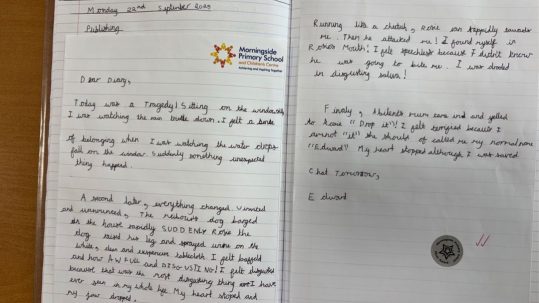 Monday 22nd September 2025
Publishing
Morningside
Primary School
and Children's Centre
Achieving and Inspiring Together
Dear Diary,
Today was a tragedy! Sitting on the windowsill
I was watching the rain down. I felt a sense
of belonging when I was watching the water drops
fall on the window. Suddenly something unexpected
thing happened.
A second later, everything changed. Uninvited
and unannounced, The dog barged
in the house SUDDENLY Rosie the
dog raised his leg and sprayed urine on the
white, clean and expensive tablecloth. I felt baffled
and how AWFUL and DISGUSTING! I felt disgusted
because that was the most disgusting thing I have
ever seen in my whole life. My heart stoped and
my jaw dropped.
Running like a cheetah, Rosie ran towards
me. Then he attacked me! I found myself in
Rosie's Mouth! I felt speechless because I didn't know
he was going to bite me. I was
in disgusting saliva!
Finaly, mum came in and yelled
to Rosie "Drop it"! I felt because I
am not "it" she should of called me my normal name
"Edward" My heart stopped although I was saved
Chat Tomorrow,
Edward